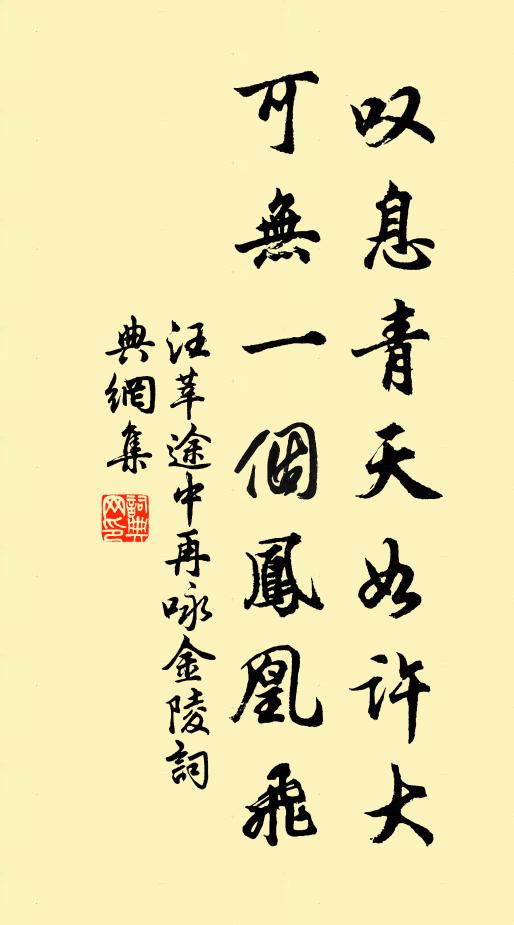 叹息青天如许大
可無一個鳳凰飛
汪莘途中再咏金陵詞
典網集
詞典網印